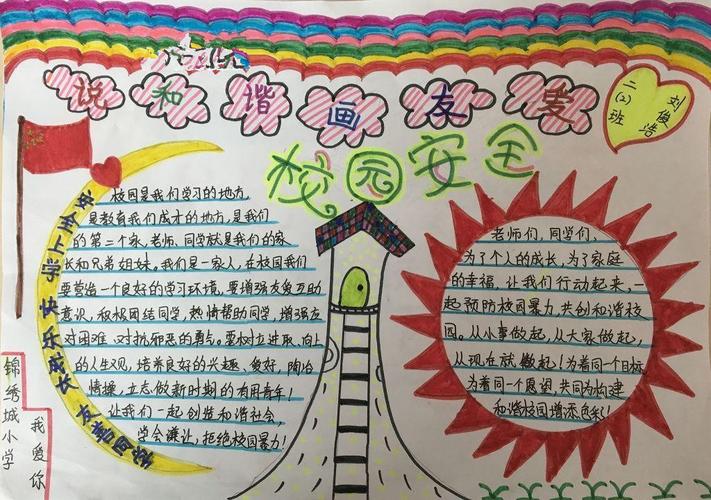 说和谐画友爱
二(2)班
刘俊浩
校园安全
安全上学 快乐成长 友善
校园是我们学习的地方,
是教育我们成才的地方,是我们
的第二个家,老师、同学就是我们的家
长和兄弟姐妹,我们是一家人,在校园我们
要营造一个良好的学习环境,要增强友爱互助
意识,积极团结同学,热情帮助同学,增强友
对困难、对抗邪恶的勇气。要树立进取、向上
的人生观,培养良好的兴趣、爱好,陶冶
情操,立志做新时期的有用青年!
让我们一起创造和谐社会,
学会谦让,拒绝校园暴力!
老师们,同学们,
为了个人的成长,为了家庭
的幸福,让我们行动起来,一
起预防校园暴力,共创和谐校
园。从小事做起,从大家做起,
从现在就做起!为着同一个目标
为着同一个愿望,共同为构建
和谐校园增添色彩!
锦绣城小学
我爱你